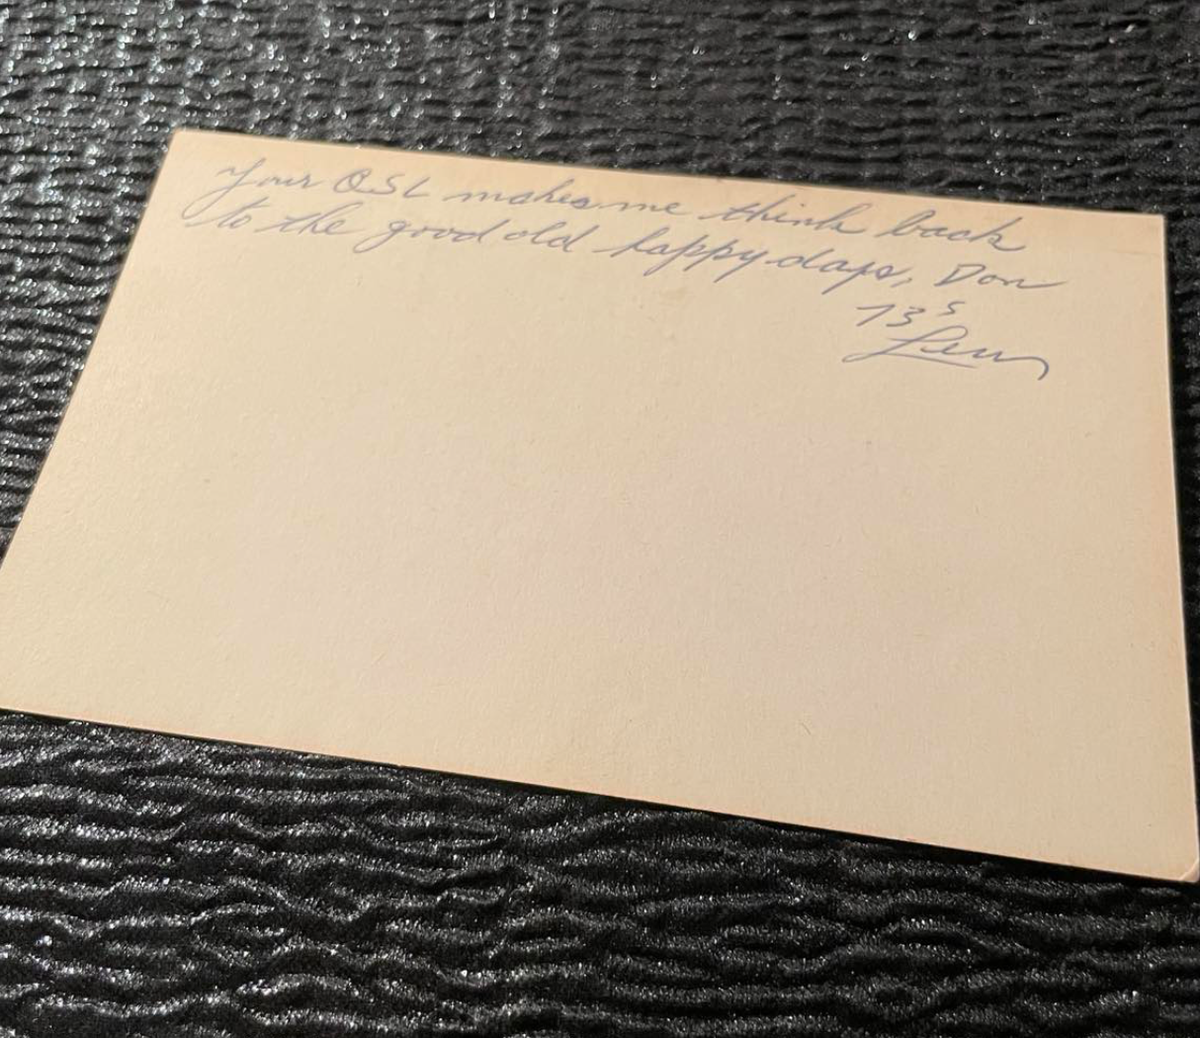 Your QSL makes me think back
to the good old happy days, Don
73s
Lew